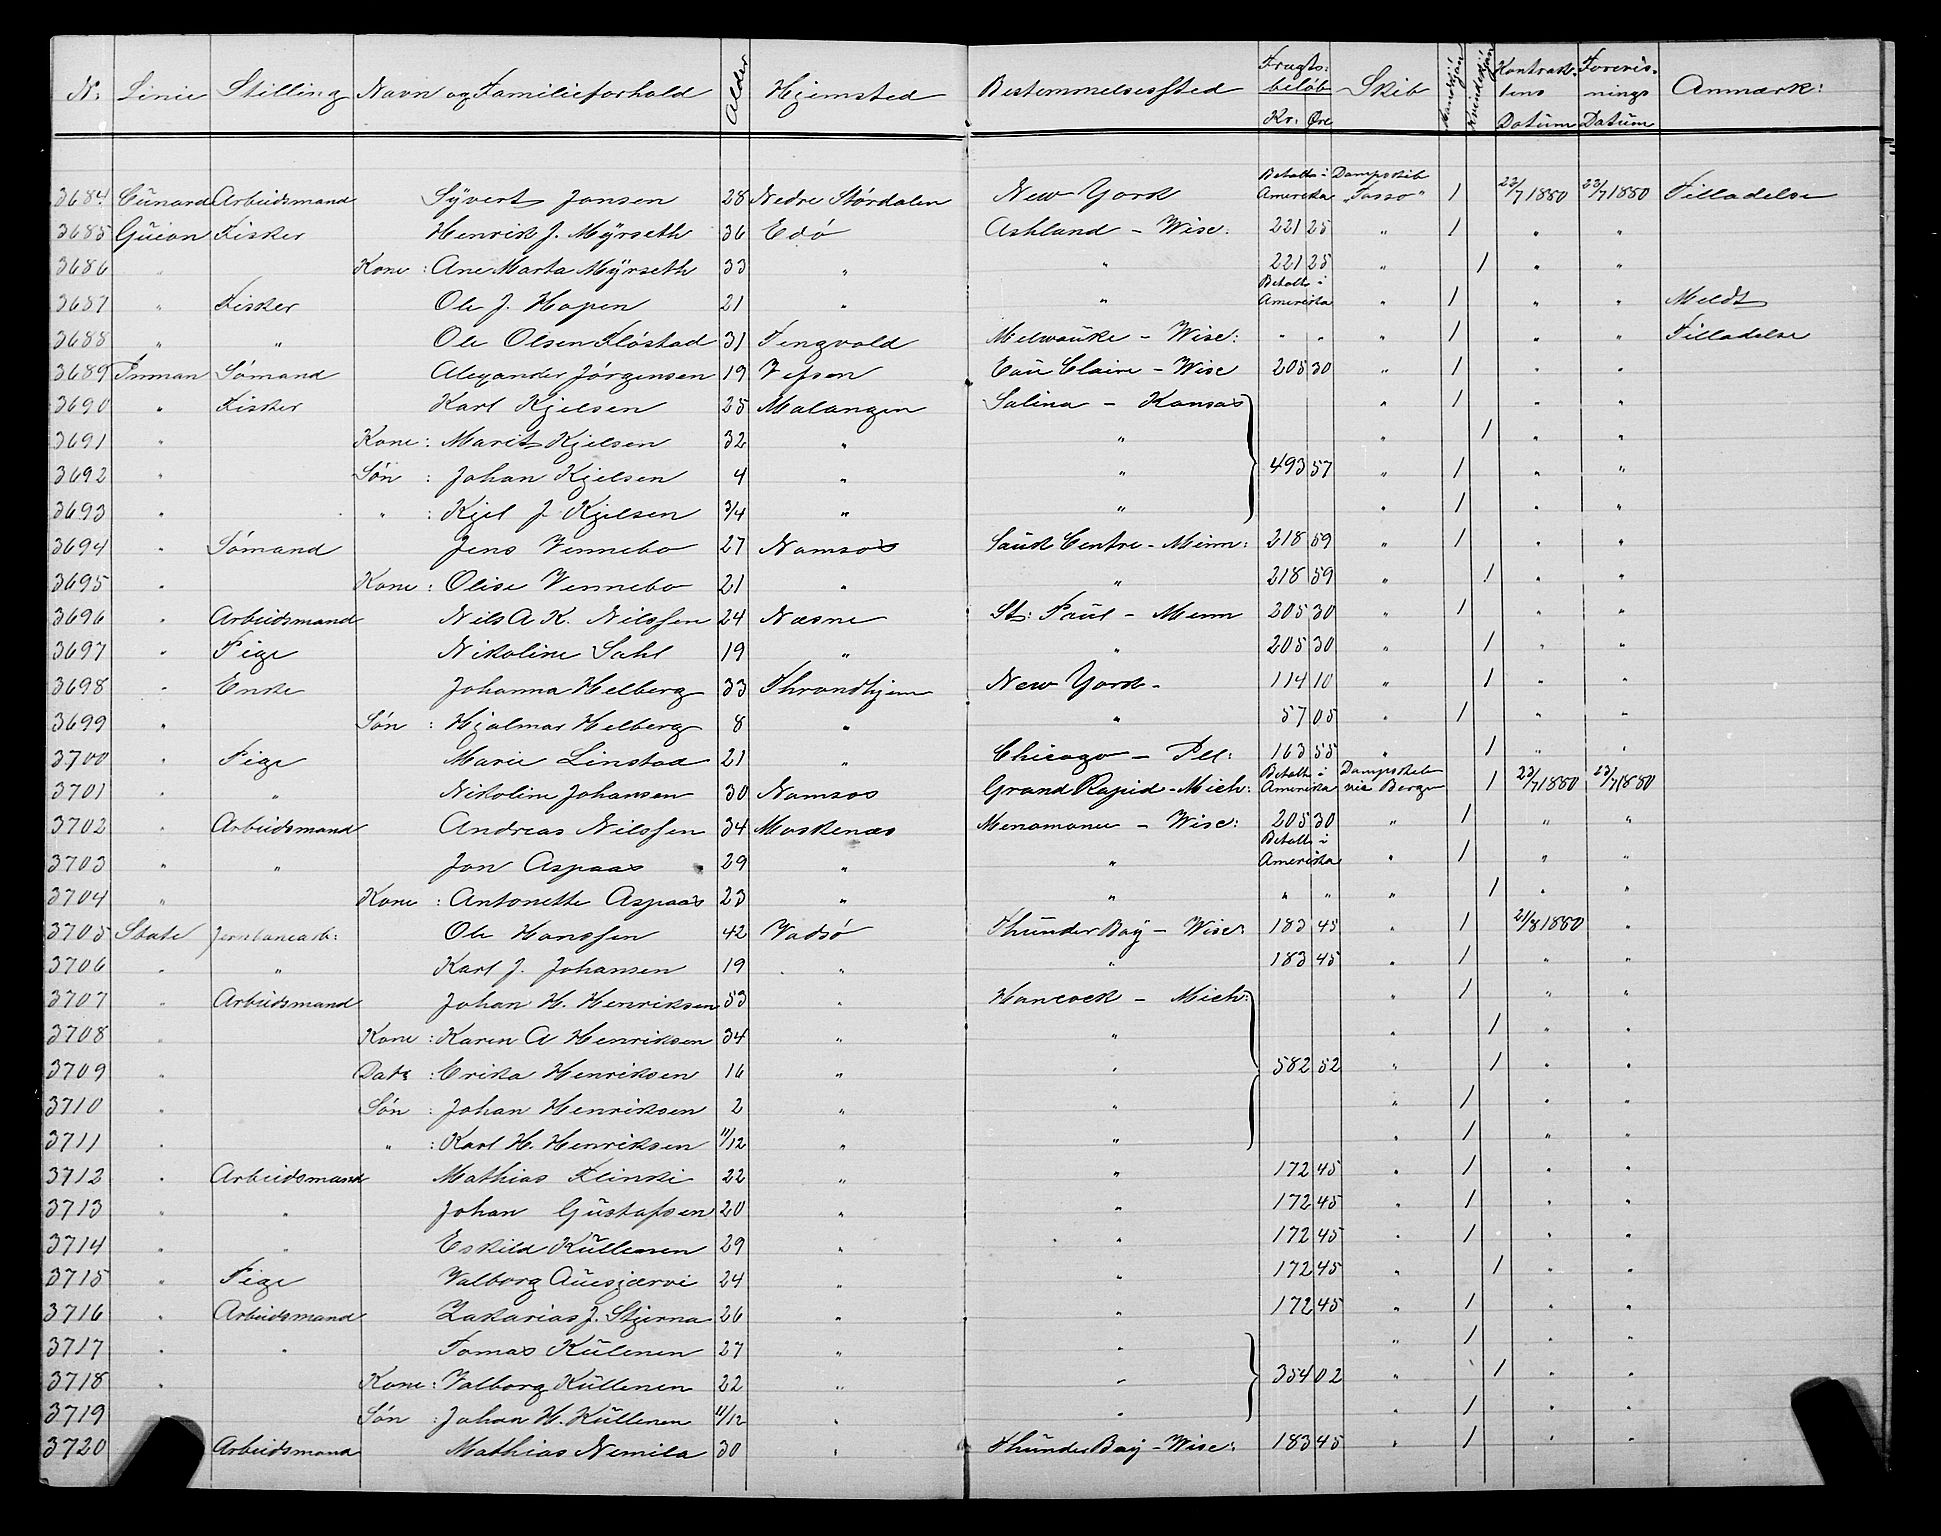 N: Linie Stilling Navn og Familieforhold Alder Hjemsted Bestemmelsessted Fragtbeløb Kr: Øre Skib Mandkjøn Kvindekjøn Kontraktens Datum Forevisnings Datum Anmærk:
3684 Cunard Arbeidsmand Syvert Jonsen 28 Nedre Størdalen New York Betalt i Amerika Dampskib "Tasso" 1 23/7 1880 23/7 1880 Tilladelse
3685 Guion Fisker Henrik J. Myrseth 36 Edø Ashland - Wisc: 221 25 " 1 " "
3686 " Kone : Ane Marta Myrseth 33 " " 221 25 " 1 " "
3687 " Fisker Ole J. Hopen 21 " " Betalt i Amerika " 1 " " Meldt
3688 " " Ole Olsen Fløstad 31 Tengvold Melwauke - Wisc: " " " 1 " " Tilladelse
3689 Inman Sømand Alexander Jørgensen 19 Vefsen Eau Claire - Wisc 205 30 " 1 " "
3690 " Fisker Karl Kjelsen 25 Malangen Salina - Kansas " 1 " "
3691 " Kone : Marit Kjelsen 32 " " " 1 " "
3692 " Søn : Johan Kjelsen 4 " " 493 57 " 1 " "
3693 " " : Kjel J. Kjelsen 3/4 " " " 1 " "
3694 " Sømand Jens Vennebo 27 Namsos Sauk Centre - Minn: 218 59 " 1 " "
3695 " Kone : Olise Vennebo 21 " " 218 59 " 1 " "
3696 " Arbeidsmand Nils A K. Nilssen 24 Næsne St: Paul - Minn 205 30 " 1 " "
3697 " Pige Nikoline Sahl 19 " " 205 30 " 1 " "
3698 " Enke Johanna Helberg 33 Throndhjem New York - 114 10 " 1 " "
3699 " Søn : Hjalmar Helberg 8 " " 57 05 " 1 " "
3700 " Pige Marie Linstad 21 " Chicago - Ill: 163 55 " 1 " "
3701 " " Nikoline Johansen 30 Namsos Grand Rapid - Mich: Betalt i Amerika Dampskib via Bergen 1 23/7 1880 23/7 1880
3702 " Arbeidsmand Andreas Nilssen 34 Moskenæs Menomonee - Wisc: 205 30 " 1 " "
3703 " " Jon Aspaas 29 " " Betalt i Amerika " 1 " "
3704 " Kone : Antonette Aspaas 23 " " " " " 1 " "
3705 State Jernbanearb: Ole Hanssen 42 Vadsø Thunder Bay - Wisc: 183 45 " 1 21/8 1880 "
3706 " " Karl J. Johansen 19 " " 183 45 " 1 " "
3707 " Arbeidsmand Johan H. Henriksen 53 " Hancock - Mich: " 1 " "
3708 " Kone : Karen A Henriksen 34 " " " 1 " "
3709 " Datr : Erika Henriksen 16 " " 582 52 " 1 " "
3710 " Søn : Johan Henriksen 2 " " " 1 " "
3711 " " : Karl H. Henriksen 11/12 " " " 1 " "
3712 " Arbeidsmand Mathias Flinki 22 " " 172 45 " 1 " "
3713 " " Johan Gustafsen 20 " " 172 45 " 1 " "
3714 " " Eskild Küllenen 29 " " 172 45 " 1 " "
3715 " Pige Valborg Auesjærvi 24 " " 172 45 " 1 " "
3716 " Arbeidsmand Zakarias J. Stjerna 26 " " 172 45 " 1 " "
3717 " " Tomas Külenen 27 " " " 1 " "
3718 " Kone : Valborg Küllenen 22 " " 354 02 " 1 " "
3719 Søn : Johan H. Küllenen 11/12 " " " 1 " "
3720 Arbeidsmand Mathias Nemila 30 " Thunder Bay - Wisc: 183 45 " 1 " "